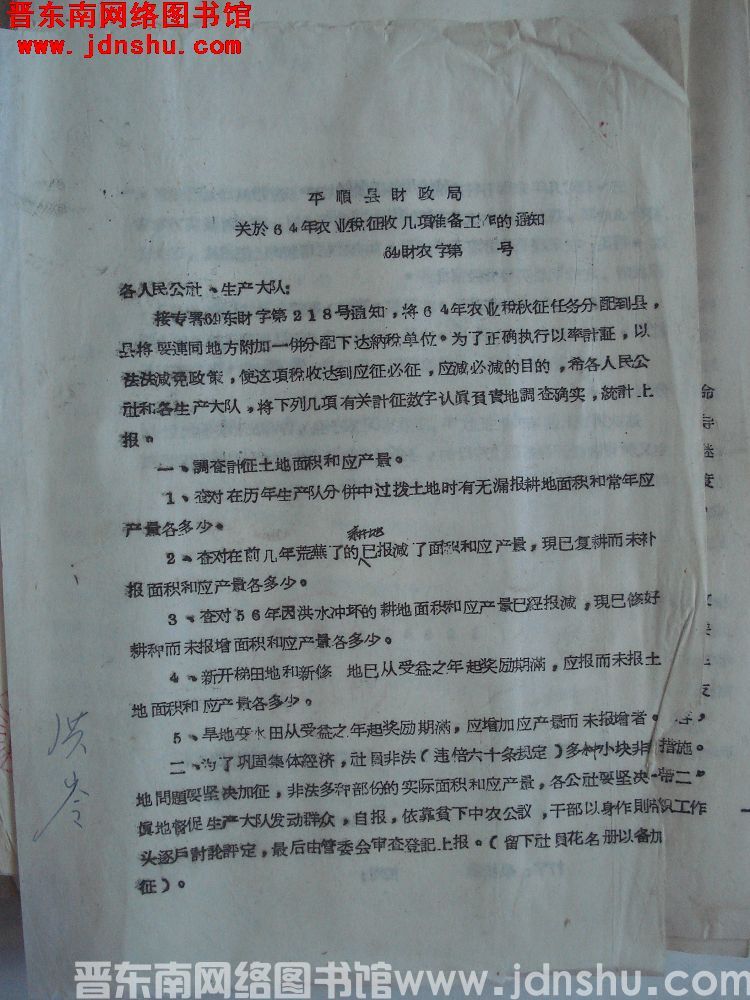 晋东南网络图书馆
www.jdnshu.com
平順县財政局
关於64年农业稅征收几項准备工作的通知
64財农字第　号
各人民公社、生产大队:
接专署64东財字第218号通知，将64年农业稅秋征任务分配到县，
县将要連同地方附加一併分配下达納稅单位。为了正确执行以率計証，以
法法减免政策，使这項稅收达到应征必征，应减必减的目的，希各人民公
社和各生产大队，将下列几項有关計征数字认眞負責地調查确实，統計上
报。
一、調查計征土地面积和应产量。
1、查对在历年生产队分併中过拨土地时有无漏报耕地面积和常年应
产量各多少。
耕地
2、查对在前几年荒蕪了的已报减了面积和应产量，現已复耕而未补
报面积和应产量各多少。
3、查对56年因洪水冲坏的耕地面积和应产量已經报减，現已修好
耕种而未报增面积和应产量各多少。
4、新开梯田地和新修　地已从受益之年起奖励期滿，应报而未报土
地面积和应产量各多少。
5、旱地变水田从受益之年起奖励期滿，应增加应产量而未报增者。
二、为了巩固集体經济，社員非法（违偣六十条規定）多种小块非
地問題要坚决加征，非法多种部份的实际面积和应产量，各公社要坚决
眞地督促生产大队发动群众，自报，依靠貧下中农公議，干部以身作則
头逐戶討論評定，最后由管委会审查登記上报。（留下社員花名册以备加
征）。
措施。
一帶二"
織工作
命
导
变
洪岺
晋东南网络图书馆www.jdnshu.com